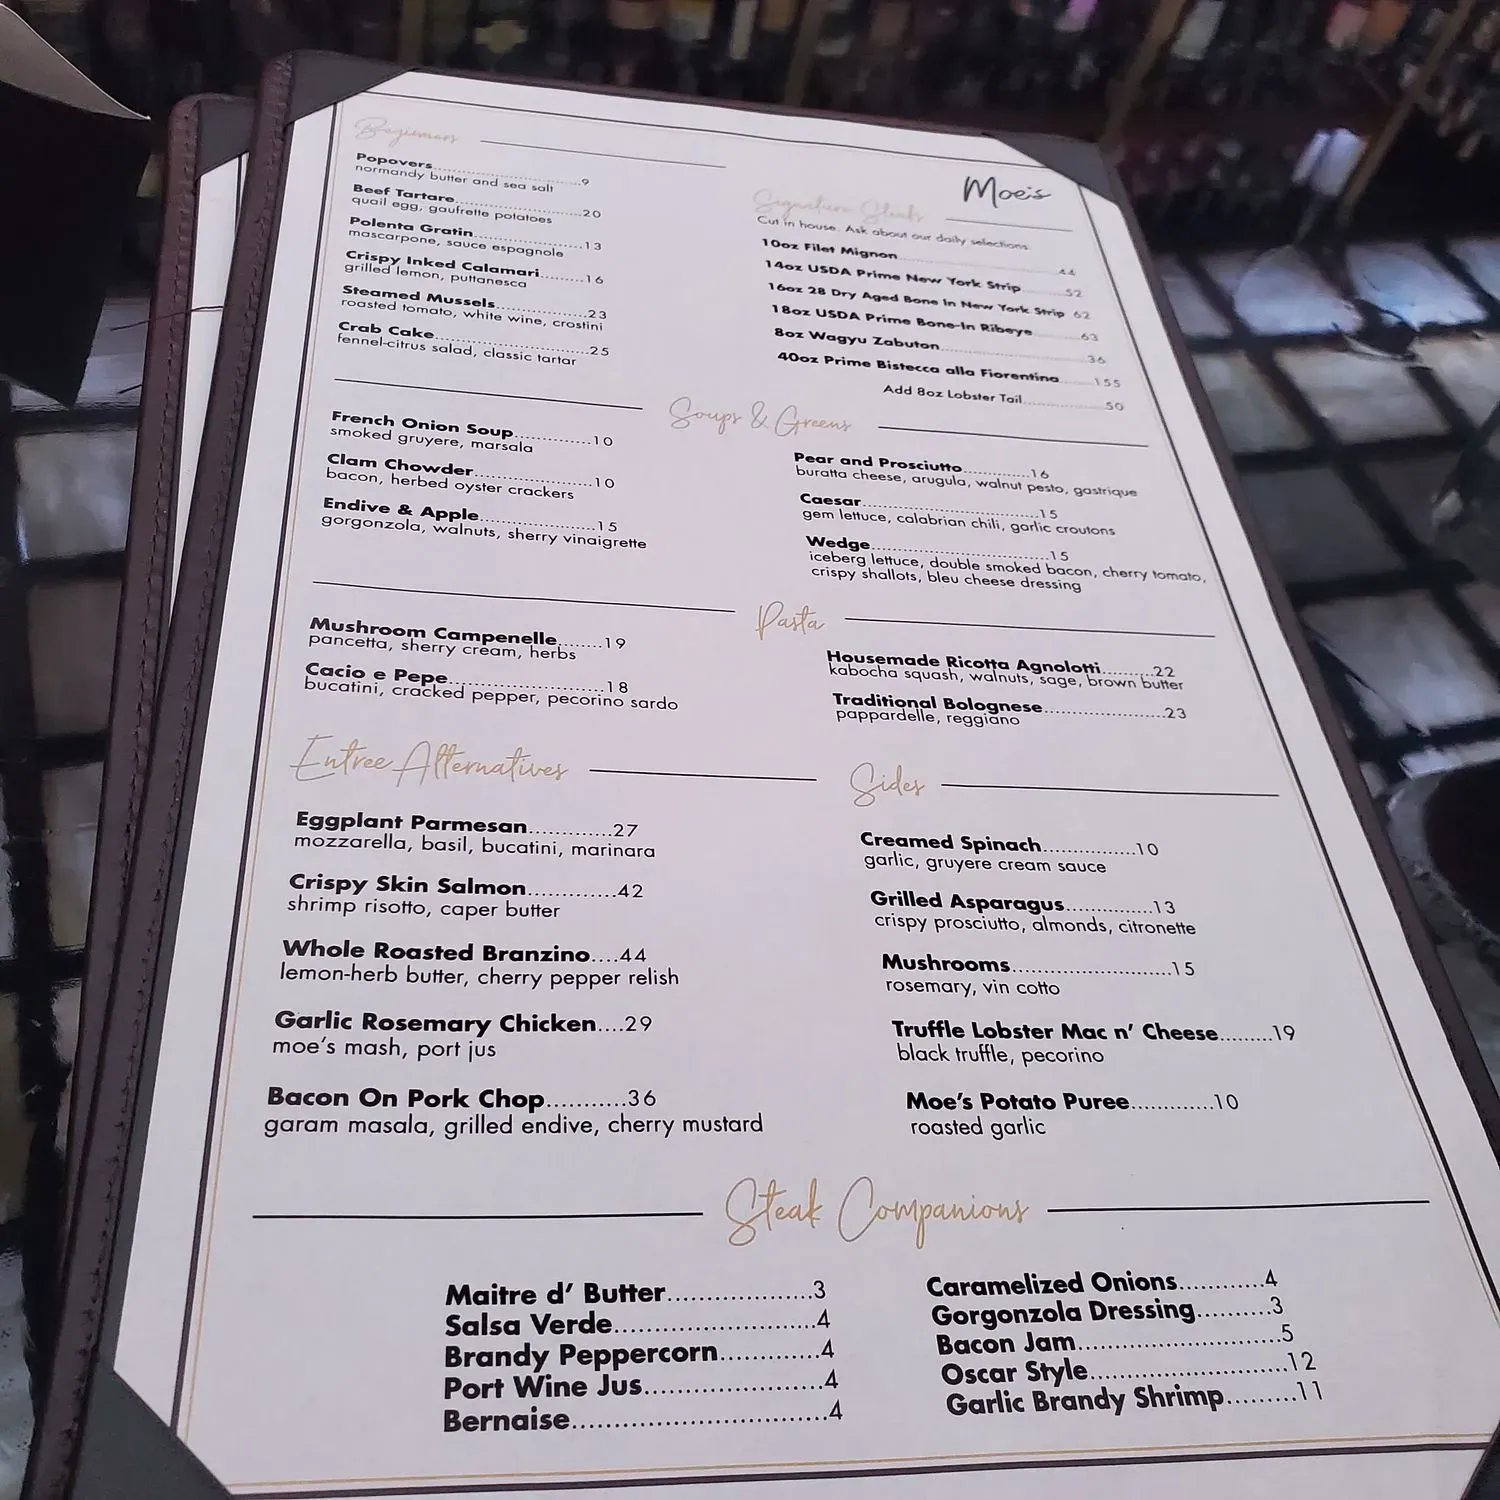 Beginners
Popovers..........9
normandy butter and sea salt
Beef Tartare..........20
quail egg, gaufrette potatoes
Polenta Gratin..........13
mascarpone, sauce espagnole
Crispy Inked Calamari..........16
grilled lemon, puttanesca
Steamed Mussels..........23
roasted tomato, white wine, crostini
Crab Cake..........25
fennel-citrus salad, classic tartar
Moe's
Signature Steaks
Cut in house. Ask about our daily selections.
10oz Filet Mignon..........44
14oz USDA Prime New York Strip..........52
16oz 28 Dry Aged Bone In New York Strip 62
18oz USDA Prime Bone-In Ribeye..........63
8oz Wagyu Zabuton..........36
40oz Prime Bistecca alla Fiorentina..........155
Add 8oz Lobster Tail..........50
Soups & Greens
French Onion Soup..........10
smoked gruyere, marsala
Clam Chowder..........10
bacon, herbed oyster crackers
Endive & Apple..........15
gorgonzola, walnuts, sherry vinaigrette
Pear and Prosciutto..........16
buratta cheese, arugula, walnut pesto, gastrique
Caesar..........15
gem lettuce, calabrian chili, garlic croutons
Wedge..........15
iceberg lettuce, double smoked bacon, cherry tomato,
crispy shallots, bleu cheese dressing
Pasta
Mushroom Campenelle........19
pancetta, sherry cream, herbs
Cacio e Pepe..........18
bucatini, cracked pepper, pecorino sardo
Housemade Ricotta Agnolotti..........22
kabocha squash, walnuts, sage, brown butter
Traditional Bolognese..........23
pappardelle, reggiano
Entree Alternatives
Eggplant Parmesan.............27
mozzarella, basil, bucatini, marinara
Crispy Skin Salmon.............42
shrimp risotto, caper butter
Whole Roasted Branzino....44
lemon-herb butter, cherry pepper relish
Garlic Rosemary Chicken....29
moe's mash, port jus
Bacon On Pork Chop...........36
garam masala, grilled endive, cherry mustard
Sides
Creamed Spinach..............10
garlic, gruyere cream sauce
Grilled Asparagus.............13
crispy prosciutto, almonds, citronette
Mushrooms........................15
rosemary, vin cotto
Truffle Lobster Mac n' Cheese........19
black truffle, pecorino
Moe's Potato Puree.............10
roasted garlic
Steak Companions
Maitre d' Butter...................3
Salsa Verde..........................4
Brandy Peppercorn.............4
Port Wine Jus.......................4
Bernaise................................4
Caramelized Onions............4
Gorgonzola Dressing..........3
Bacon Jam...........................5
Oscar Style..........................12
Garlic Brandy Shrimp.........11